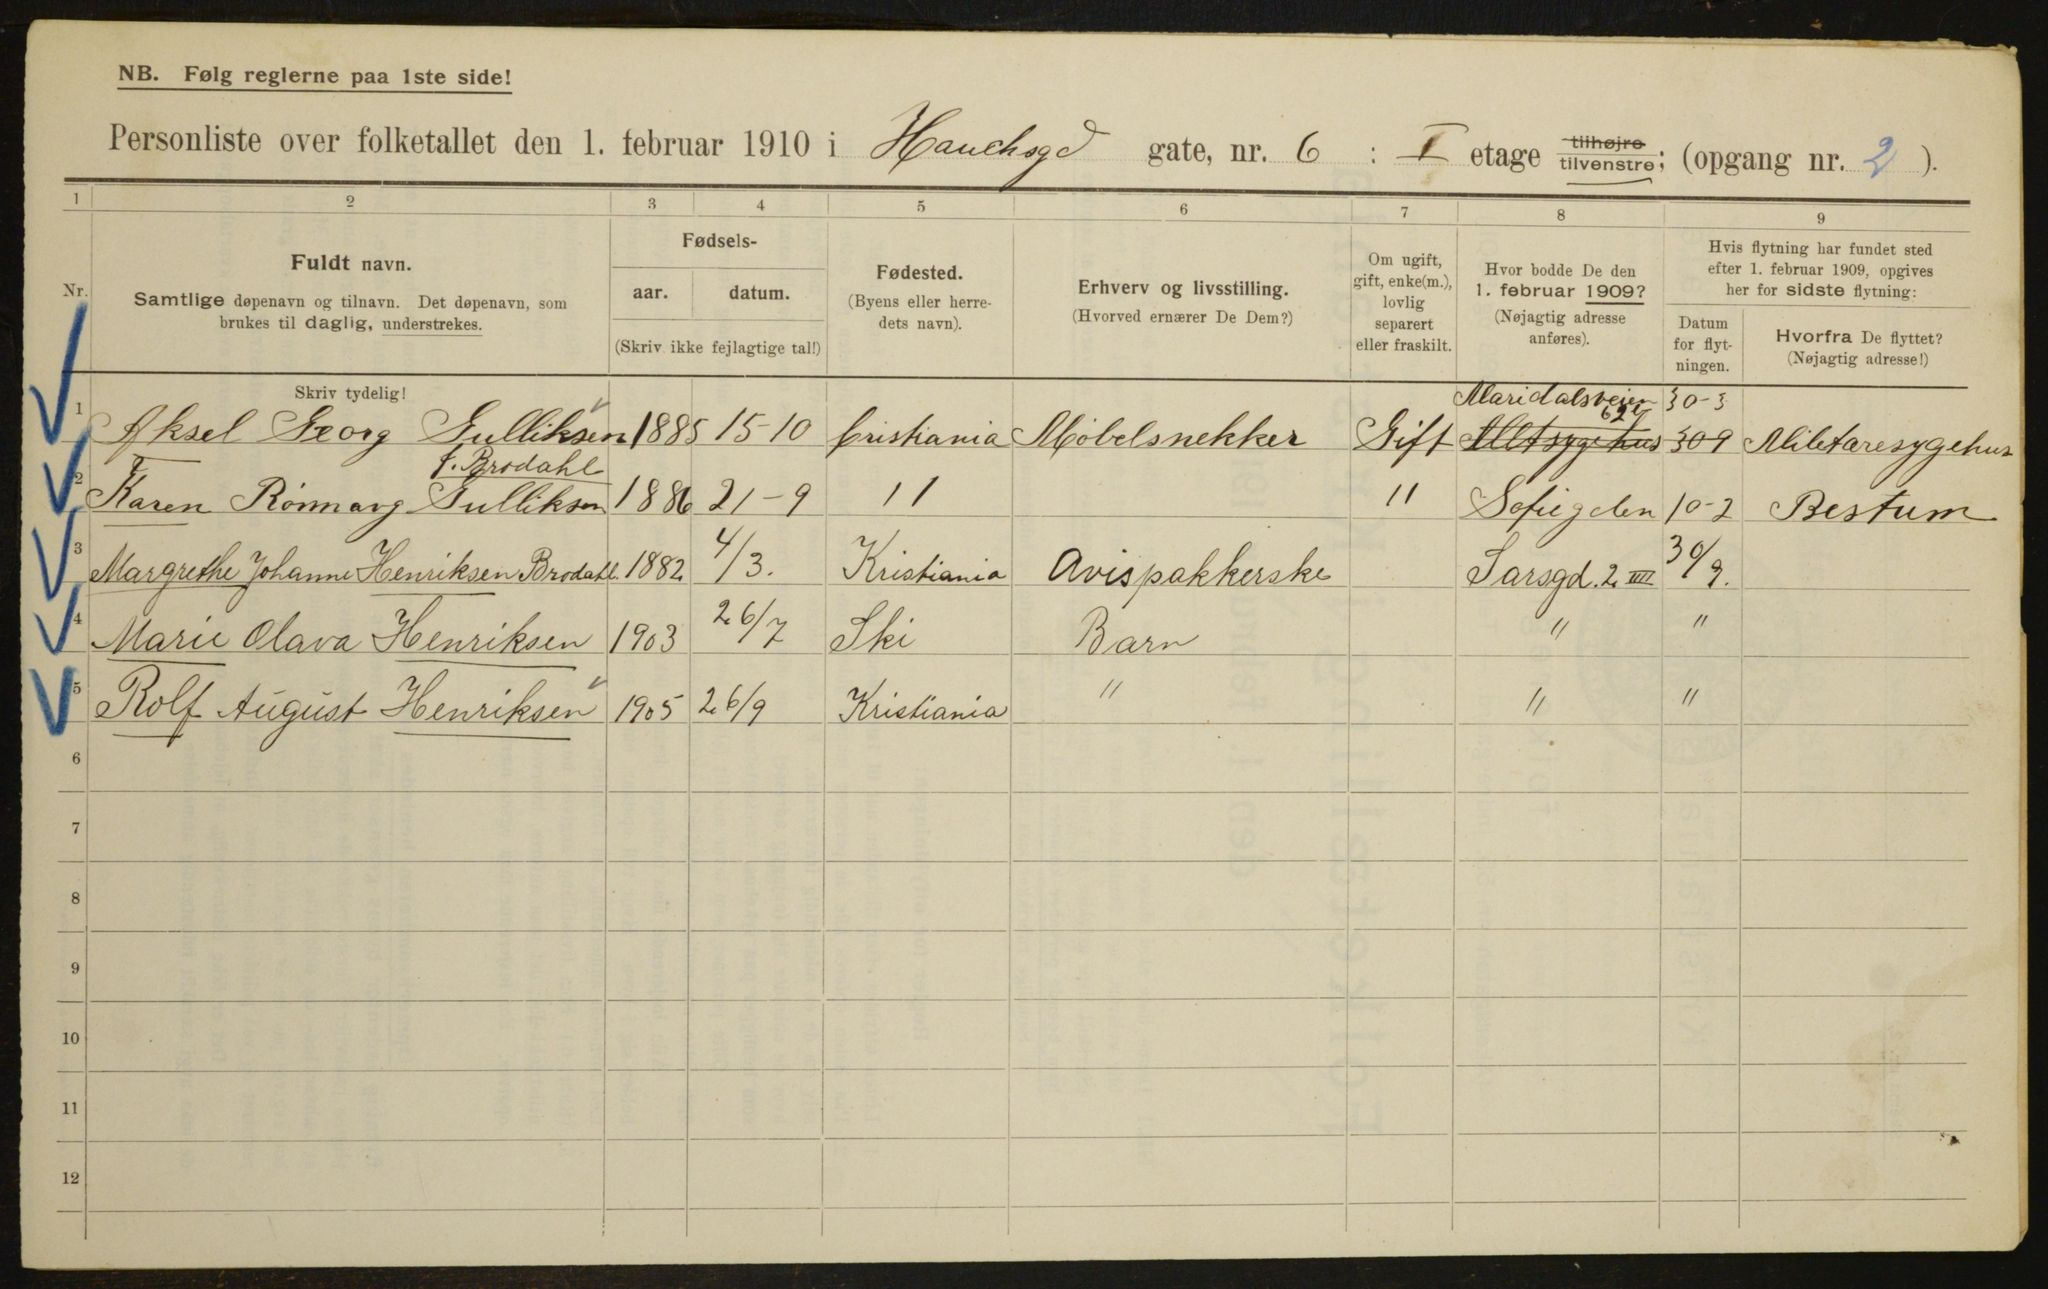 NB. Følg reglerne paa 1ste side!
Personliste over folketallet den 1. februar 1910 i Hauchsgd gate, nr. 6 : I etage tilhøjre tilvenstre; (opgang nr. 2 ).
1 2 3 4 5 6 7 8 9
Nr.
Fuldt navn.
Samtlige døpenavn og tilnavn. Det døpenavn, som
brukes til daglig, understrekes.
Skriv tydelig!
Fødsels-
aar. datum.
(Skriv ikke fejlagtige tal!)
Fødested.
(Byens eller herre-
dets navn).
Erhverv og livsstilling.
(Hvorved ernærer De Dem?)
Om ugift,
gift, enke(m.),
lovlig
separert
eller fraskilt.
Hvor bodde De den
1. februar 1909?
(Nøjagtig adresse
anføres).
Hvis flytning har fundet sted
efter 1. februar 1909, opgives
her for sidste flytning:
Datum
for flyt-
ningen.
Hvorfra De flyttet?
(Nøjagtig adresse!)
Maridalsveien 30-3
1 Aksel Georg Gulliksen 1885 15-10 Cristiania Møbelsnekker Gift Miltsygehus 309 Militæresygehus
f. Brodahl
2 Karen Rönnaug Gulliksen 1886 21-9 11 11 Sofiegden 10-2 Bestum
3 Margrethe Johanne Henriksen Brodahl. 1882 4/3. Kristiania Avispakkerske Sarsgd. 2 IIII 30/9.
4 Marie Olava Henriksen 1903 26/7 Ski Barn " "
5 Rolf August Henriksen 1905 26/9 Kristiania " " "
6
7
8
9
10
11
12